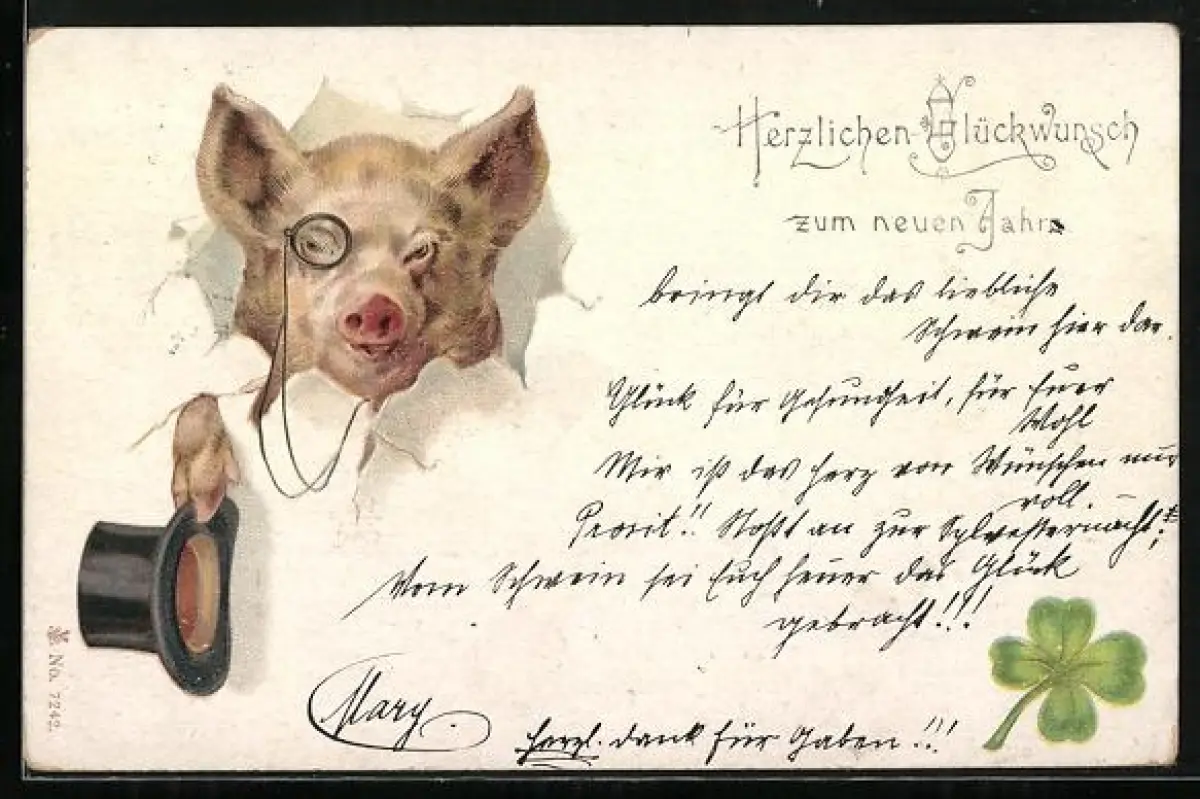 Herzlichen Glückwunsch
zum neuen Jahre
bringt dir das liebliche
Schwein hier dar.
Glück für Gesundheit, für Euer
Wohl
Mir ist das Herz von Wünschen nur
voll.
Prosit!! Stoßt an zur Sylvesternacht;
Vom Schwein sei Euch heuer das Glück
gebracht!!!
Mary.
Herzl. Dank für Gaben!!!
No. 7242.